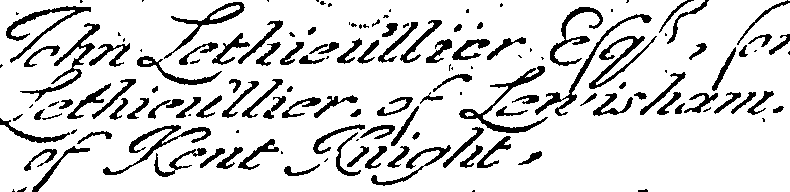 John Lethieullier Esqr, son
Lethieullier, of Lewisham,
of Kent Knight,